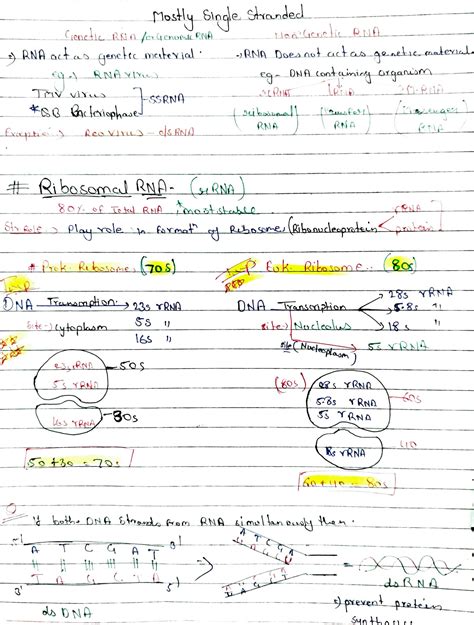 Mostly Single Stranded
Genetic RNA / or Genomic RNA
Non Genetic RNA
RNA act as genetic material.
RNA Does not act as genetic material
eg.) RNA virus
eg- DNA containing organism
TMV virus
Bacteriophase
SSRNA
RNA
RNA
RNA
Reo virus - dsRNA
# Ribosomal RNA- (rRNA)
80% of Total RNA, * most stable
rRNA
Play role in format of Ribosome (Ribonucleoprotein
protein
* Prok. Ribosome (70s)
Imp Euk. Ribosome. (80s)
Imp
DNA Transcription 23s rRNA
5s "
16s "
Site- Cytoplasm
DNA Transcription
28s rRNA
5.8s "
18s "
Site) Nucleolus
(Nucleoplasm) 5s rRNA
23s rRNA
5s rRNA
50s
16s rRNA
30s
50+30 = 70s
(80s)
28s rRNA
5.8s rRNA
5s rRNA
60s
18s rRNA
40
60+40 = 80s
if both DNA Strands from RNA simultaneously then.
5' A T C G A T 3'
3' 5'
ds DNA
dsRNA
prevent protein